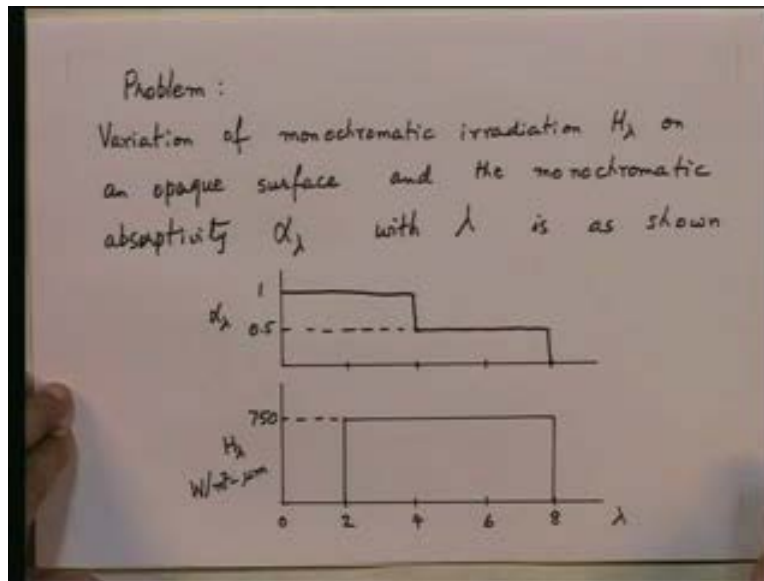 Problem :
Variation of monochromatic irradiation Hλ on
an opaque surface and the monochromatic
absorptivity αλ with λ is as shown
1
αλ 0.5
750
Hλ
W/m²-μm
0 2 4 6 8 λ